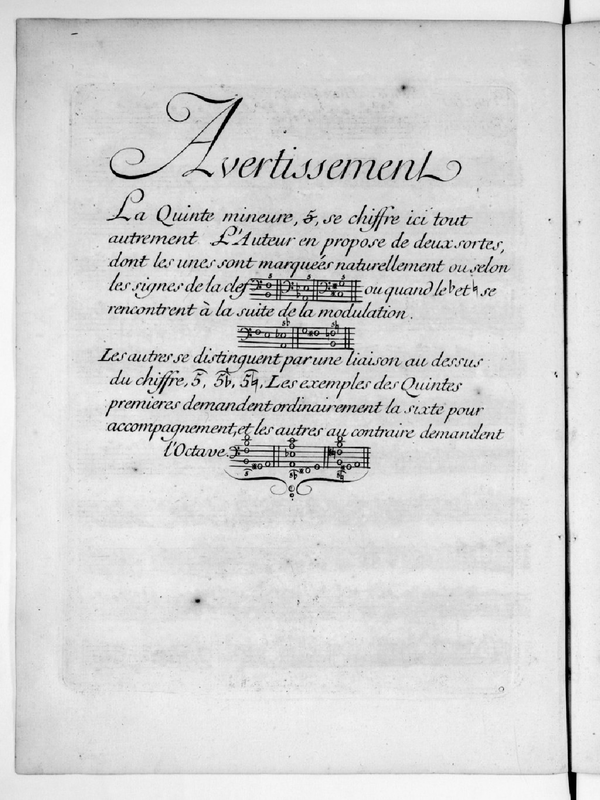 Avertissement
La Quinte mineure, 5, se chiffre ici tout
autrement L'Auteur en propose de deux sortes,
dont les unes sont marqueés naturellement ou selon
les signes de la clef ou quand le ♭ et ♮ se
rencontrent à la suite de la modulation.
Les autres se distinguent par une liaison au dessus
du chiffre, 5, 5♭, 5♮, Les exemples des Quintes
premieres demandent ordinairement la sixte pour
accompagnement, et les autres au contraire demandent
l'Octave.